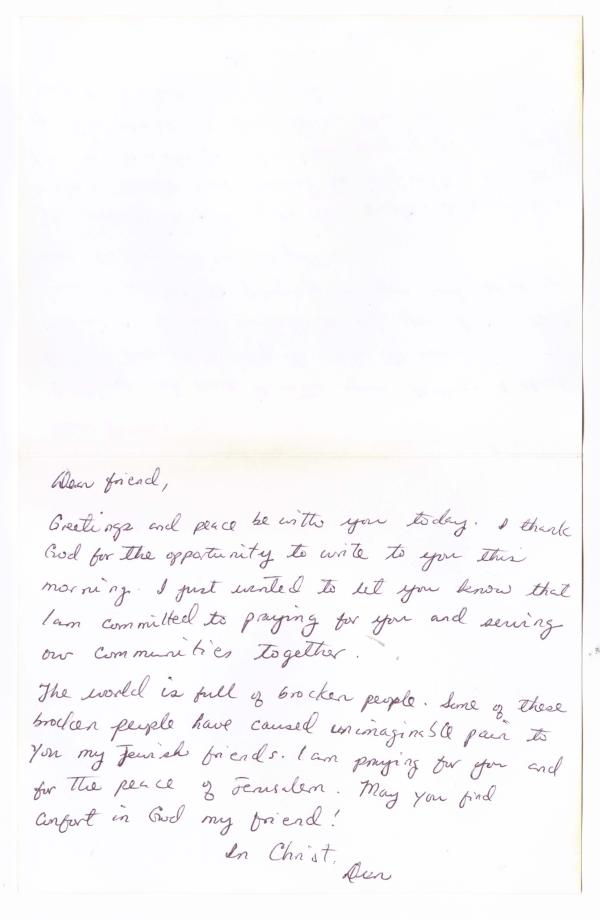 Dear friend,
Greetings and peace be with you today. I thank
God for the opportunity to write to you this
morning. I just wanted to let you know that
I am committed to praying for you and serving
our communities together.
The world is full of brocken people. Some of these
brocken people have caused unimaginable pain to
you my Jewish friends. I am praying for you and
for the peace of Jerusalem. May you find
comfort in God my friend!
In Christ,